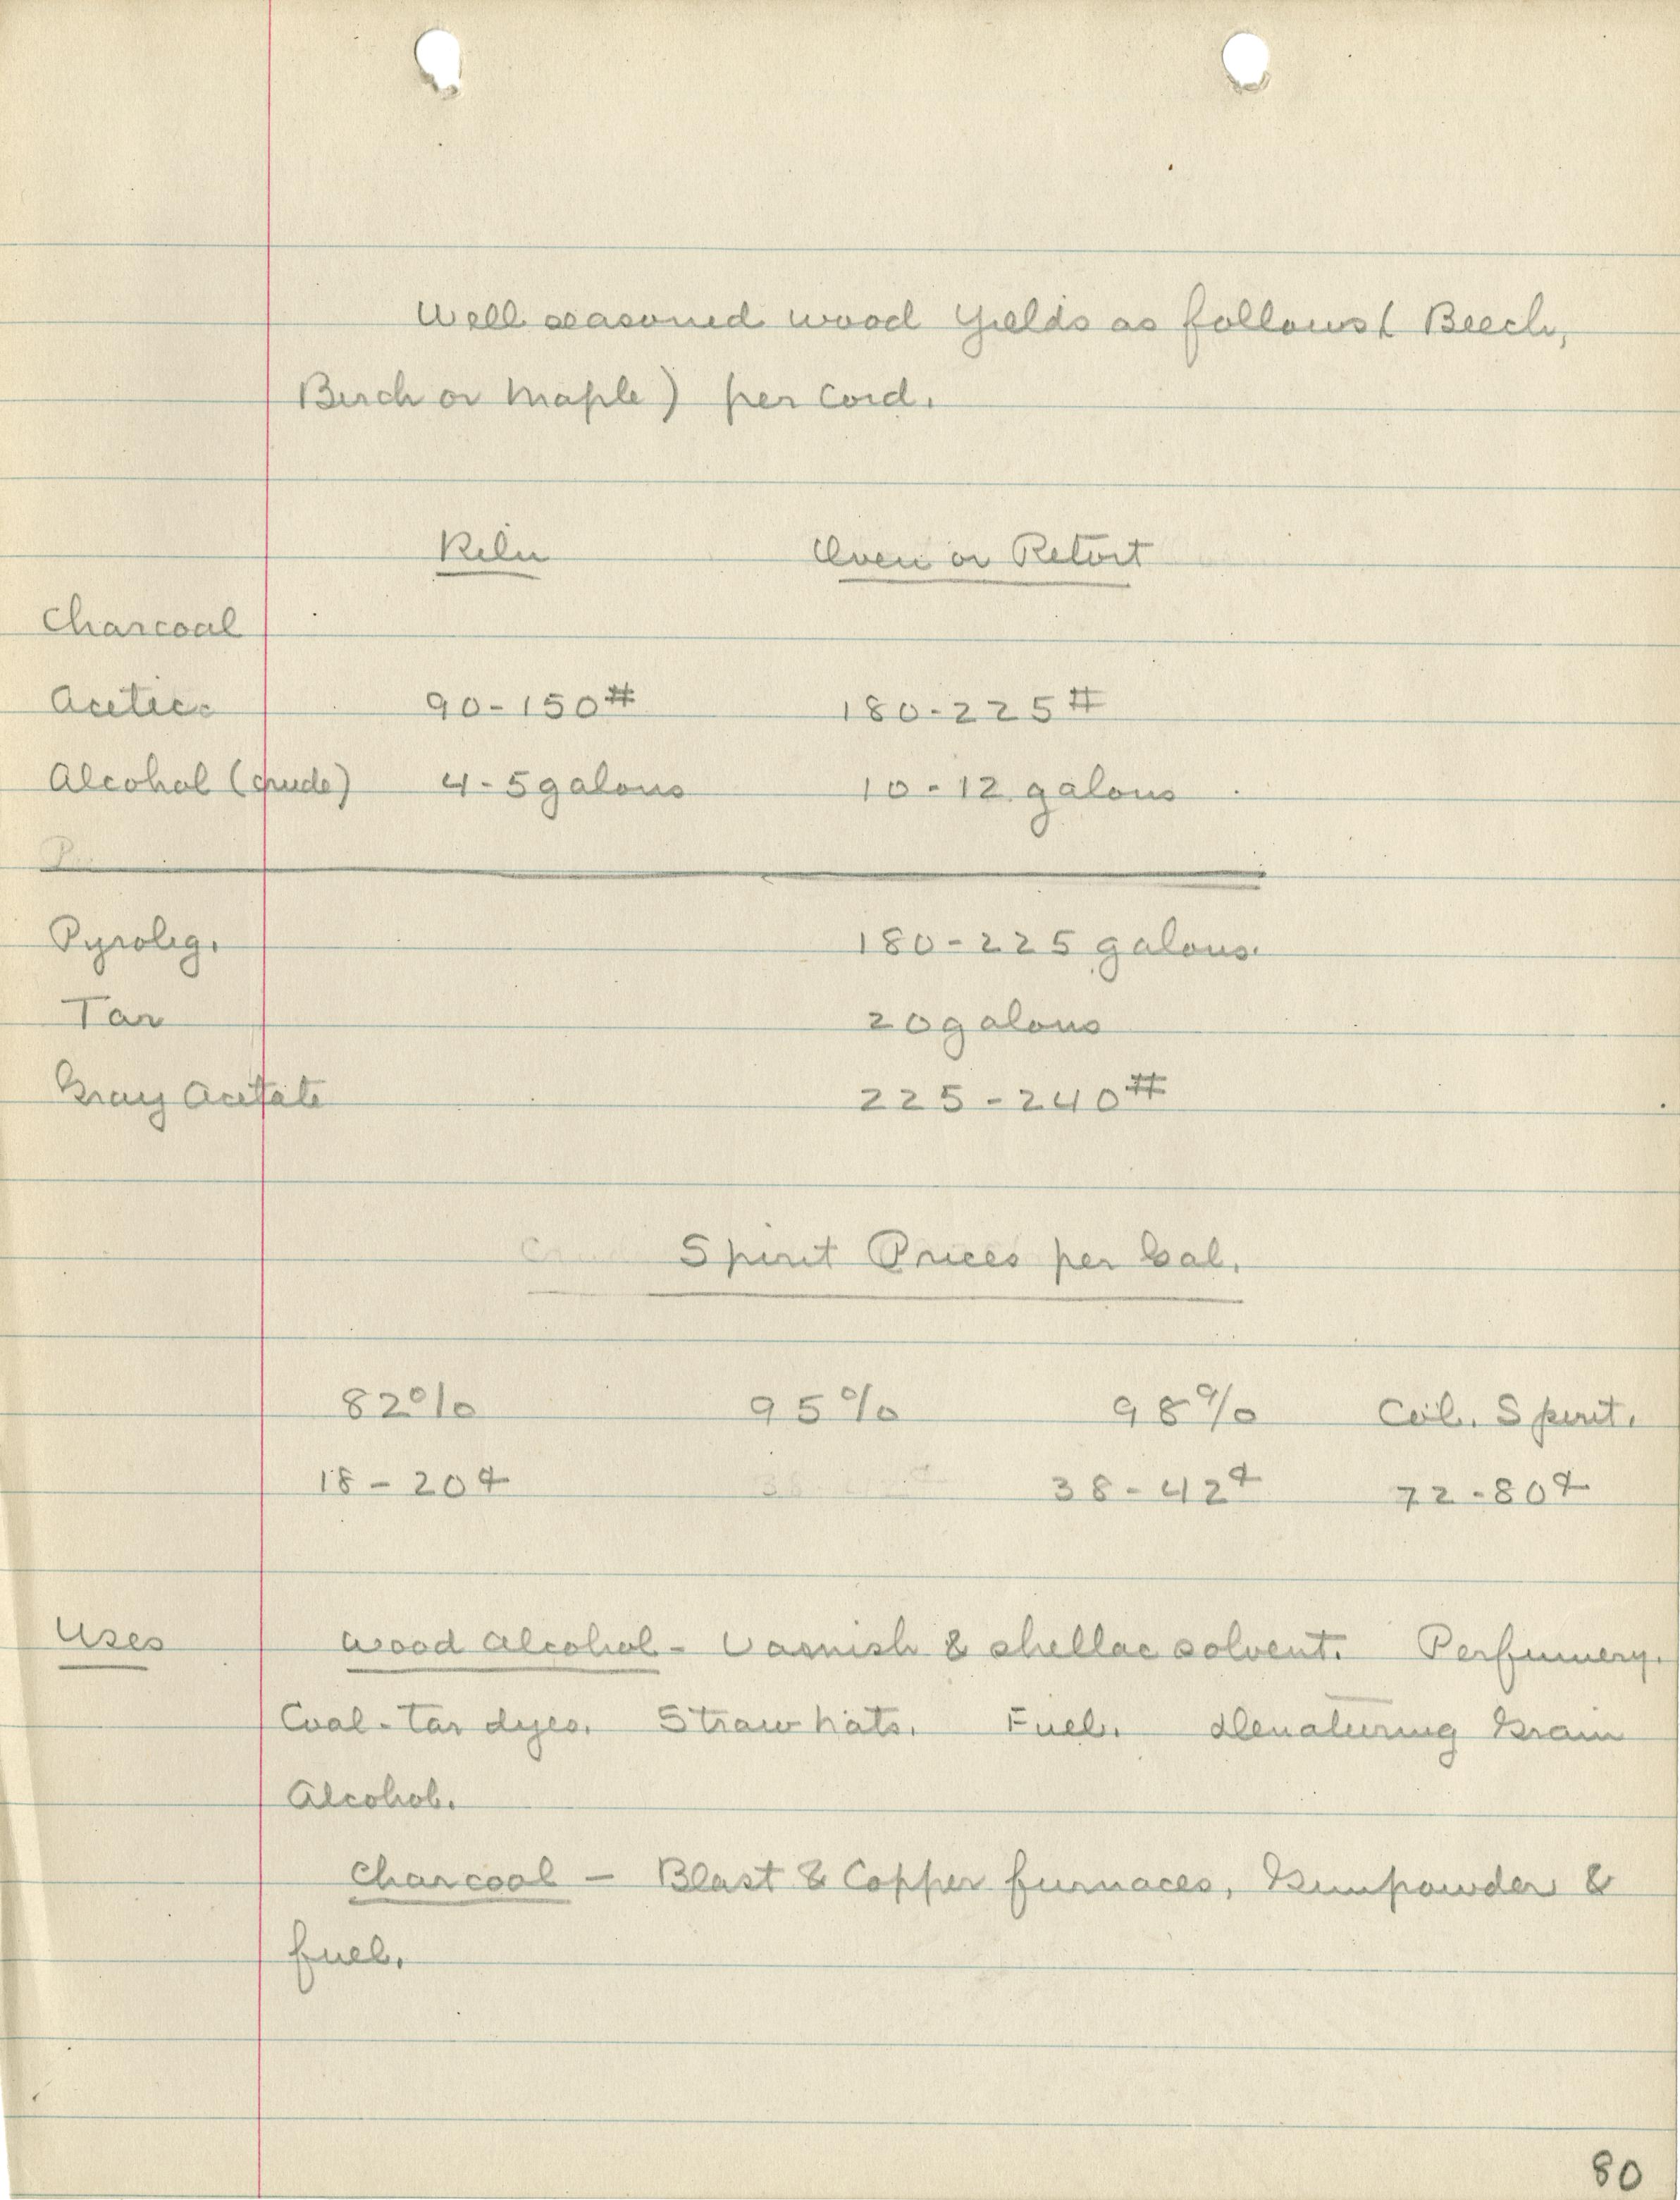 Well seasoned wood yields as follows ( Beech,
Birch or Maple) per Cord.
Kiln Oven or Retort
Charcoal
Acetic 90-150# 180-225#
Alcohol (crude) 4-5galons 10-12 galons
Pyrolig. 180-225 galons.
Tar 20galons
Gray Acetate 225-240#
Spirit Prices per Gal.
82% 95% 98% Col. Spirit.
18-20¢ 38-42¢ 72-80¢
Uses Wood Alcohol - Varnish & shellac solvent. Perfumery.
Coal-tar dyes. Straw hats. Fuel. denaturing Grain
Alcohol.
Charcoal - Blast & Copper furnaces, Gunpowder &
fuel.
80